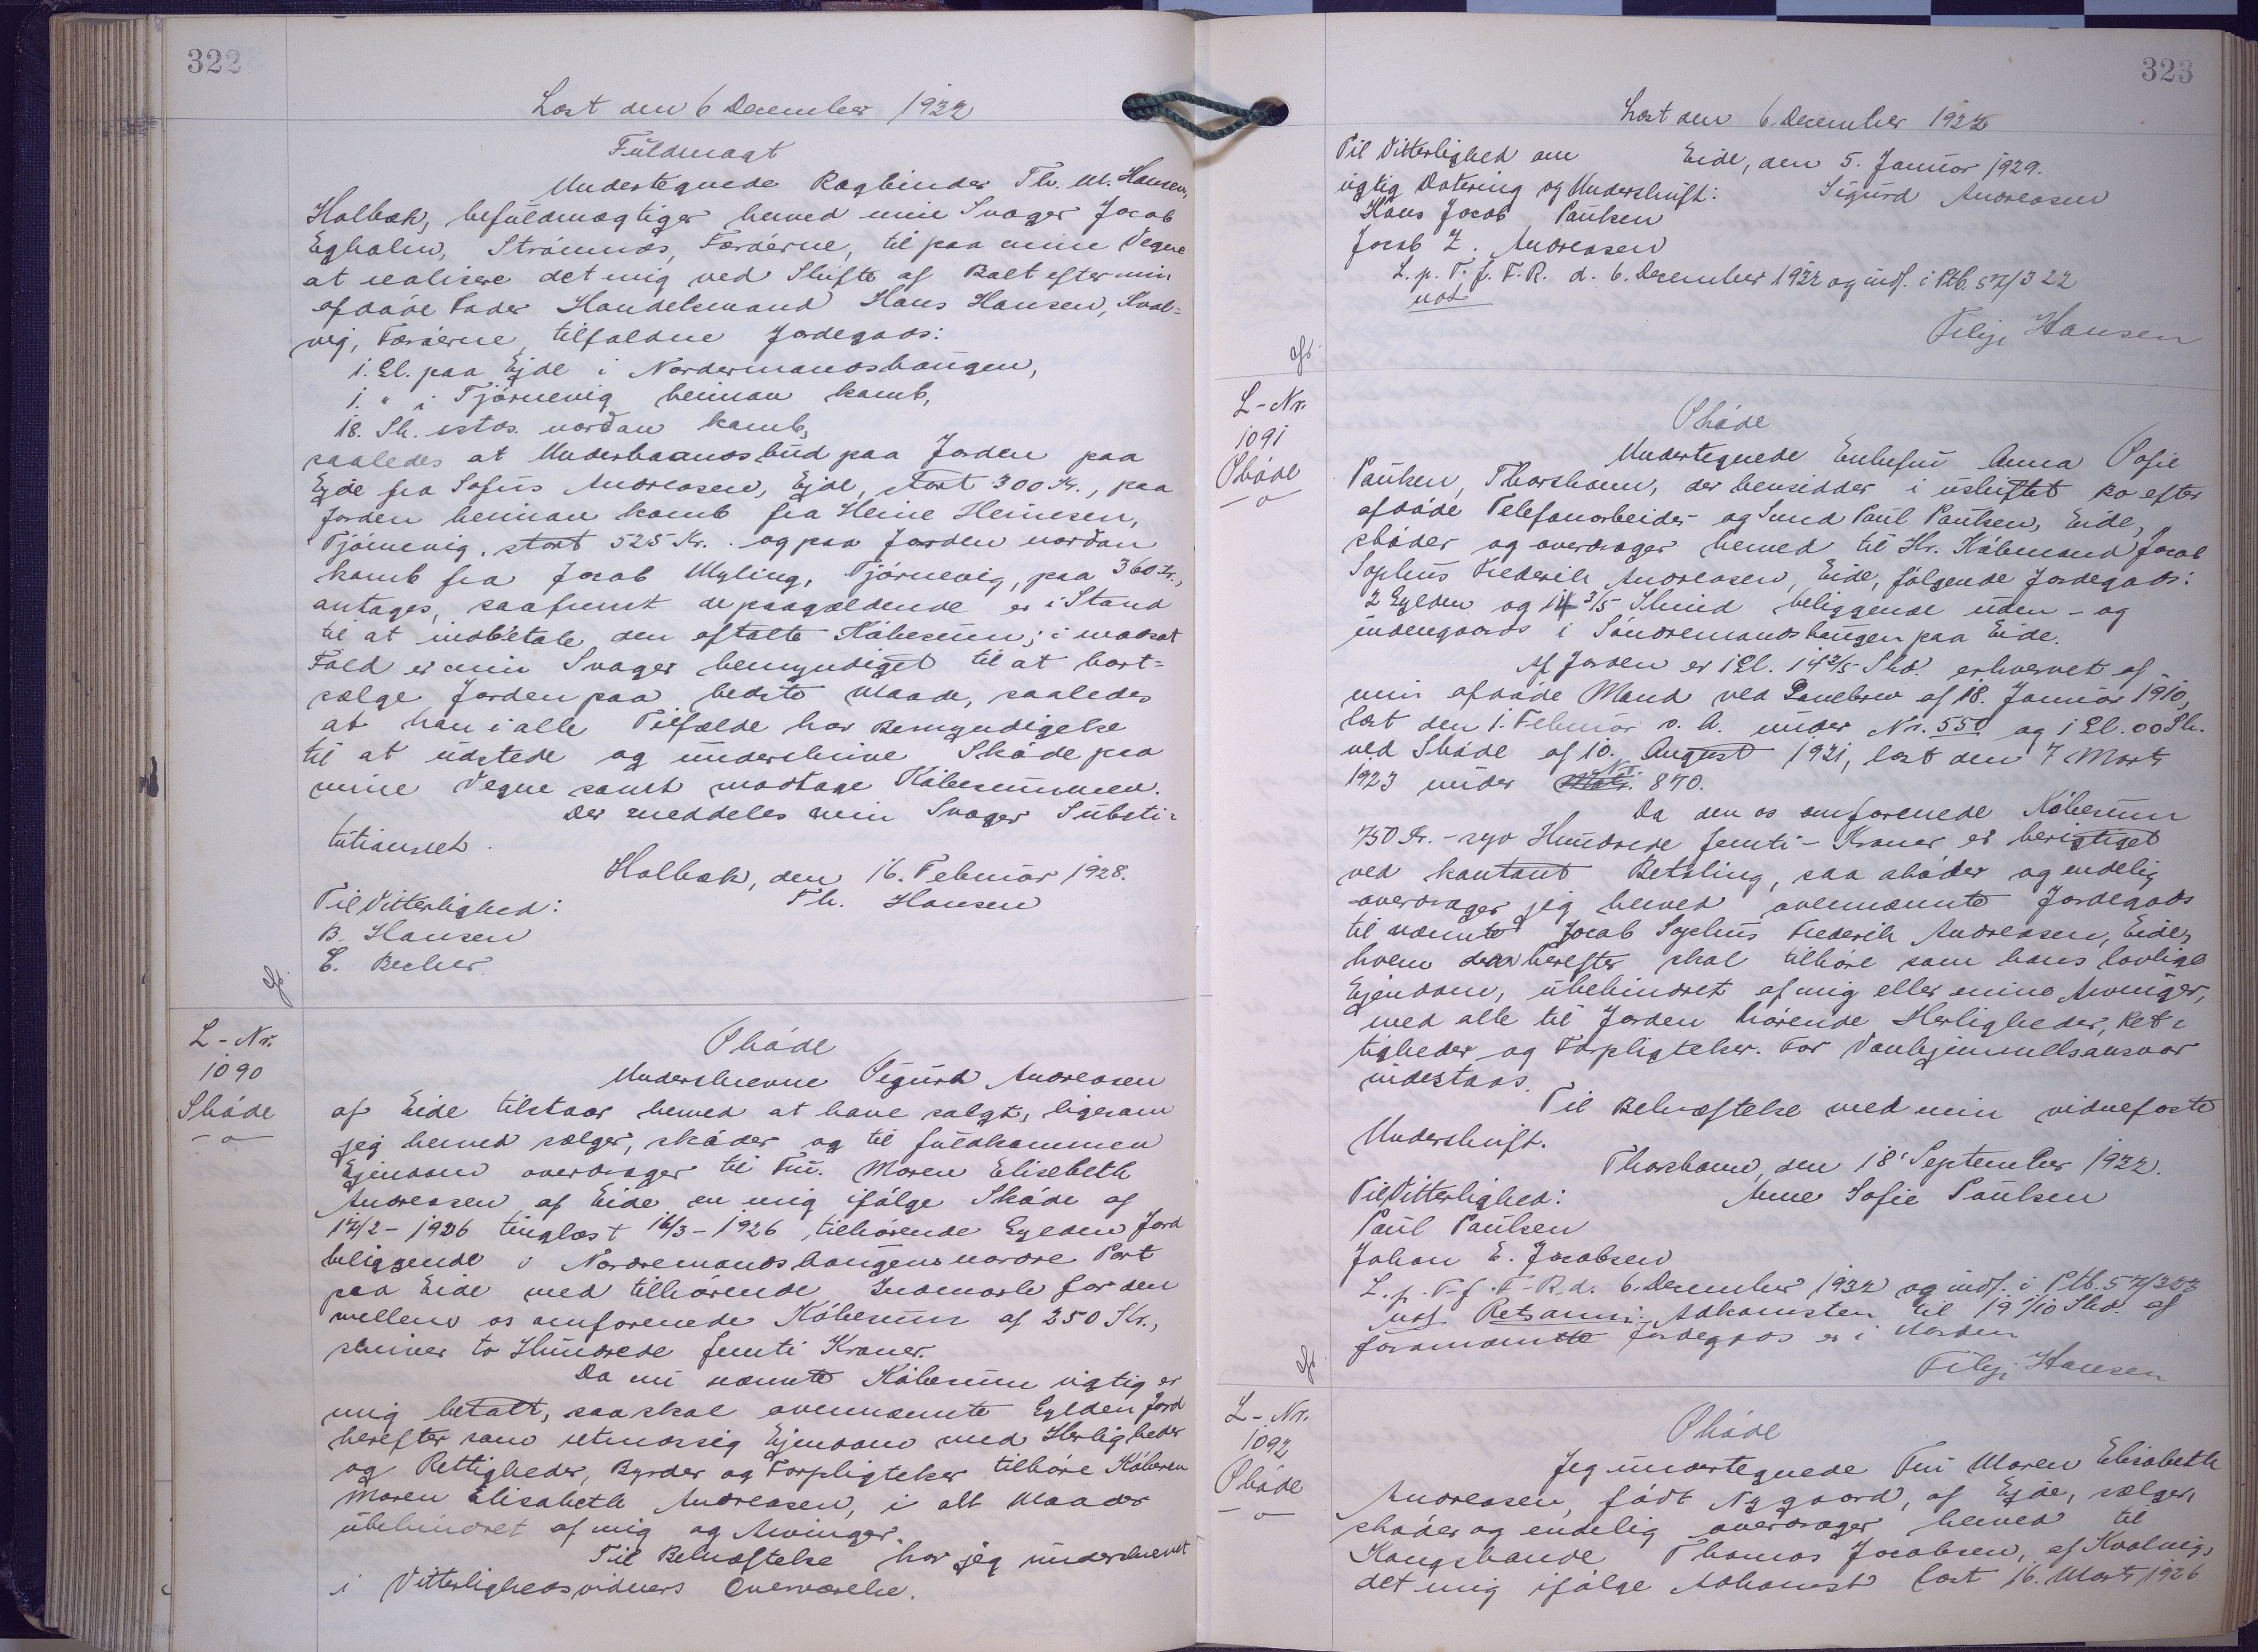 322
Læst den 6 December 1932
Fuldmagt
Undertegnede Bogbinder Th. M. Hansen,
Holbæk, befuldmægtiger herved min Svoger Jacob
Egholm, Strömnæs, Færöerne, til paa mine Vegne
at realisere det mig ved Skifte af Boet efter min
afdöde Fader Handelsmand Hans Hansen, Kval-
vig, Færöerne, tilfaldne Jordegods:
1. Gl. paa Ejde i Nordermandshaugen,
1. " i Tjörnevig heiman kamb,
18. Sk. istds. nordan kamb,
saaledes at Underhaandsbud paa Jorden paa
Ejde fra Sofus Andreasen, Ejde, stort 300 Kr., paa
Jorden heiman kamb fra Heine Heinesen,
Tjörnevig, stort 525 Kr. og paa Jorden nordan
kamb fra Jacob Myling, Tjörnevig, paa 360 Kr.,
antages, saafremt de paagældende er i Stand
til at indbetale den aftalte Köbesum; i modsat
Fald er min Svoger bemyndiget til at bort-
sælge Jorden paa bedste Maade, saaledes
at han i alle Tilfælde har Bemyndigelse
til at udstede og underskrive Sköde paa
mine Vegne samt modtage Köbesummen.
Der meddeles min Svoger Substi-
tutionsret.
Holbæk, den 16. Februar 1928.
Til Vitterlighed: Th. Hansen
B. Hansen
E. Becher.
L-Nr.
1090
Sköde
Sköde
Underskrevne Sigurd Andreasen
af Eide tilstaar herved at have solgt, ligesom
jeg herved sælger, sköder og til fuldkommen
Ejendom overdrager til Fru. Maren Elisebeth
Andreasen af Eide en mig ifölge Sköde af
17/2 - 1926 tinglæst 16/3 - 1926, tilhörende Gylden Jord
beliggende i Nordremandshaugens nordre Part
paa Eide med tilhörende Indmark for den
mellem os omforenede Köbesum af 250 Kr.,
skriver to Hundrede femti Kroner.
Da nu nævnte Köbesum rigtig er
mig betalt, saa skal ovennævnte Gylden Jord
herefter som retmæssig Ejendom med Herligheder
og Rettigheder, Byrder og Forpligtelser tilhöre Köberen
Maren Elisabeth Andreasen, i alt Maader
ubehindret af mig og Arvinger.
Til Bekræftelse har jeg underskrevet
i Vitterlighedsvidners Overværelse.
323
Læst den 6. December 1932
Til Vitterlighed om Eide, den 5. Januar 1929.
rigtig Datering og Underskrift: Sigurd Andreasen
Hans Jacob Paulsen
Jacob Z. Andreasen
L. p. T. f. F. R. d. 6. December 1932 og indf. i Ptb. S7/322
Filip Hansen
L-Nr.
1091
Sköde
Sköde
Undertegnede Enkefru Anna Sofie
Paulsen, Thorshavn, der hensidder i uskiftet Bo efter
afdöde Telefonarbeider og Smed Paul Paulsen, Eide,
sköder og overdrager herved til Hr. Köbmand Jacob
Sophus Frederik Andreasen, Eide, fölgende Jordegods:
2 Gylden og 14 3/5 Skind beliggende uden- og
indengaards i Söndremandshaugen paa Eide.
Af Jorden er 1 Gl. 14 3/5 Skd. erhvervet af
min afdöde Mand ved Panebrev af 18. Januar 1910,
læst den 1. Februar s. A. under Nr. 550 og 1 Gl. 00 Sk.
ved Sköde af 10. August 1921, læst den 7 Marts
1923 under Nr. 870.
Da den os omforenede Köbesum
750 Kr. - syv Hundrede femti - Kroner er berigtiget
ved kontant Betaling, saa sköder og endelig
overdrager jeg herved ovennævnte Jordegods
til nævnte Jacob Sophus Frederik Andreasen, Eide,
hvem den herefter skal tilhöre som hans lovlige
Ejendom, ubehindret af mig eller mine Arvinger,
med alle til Jorden hörende Herligheder, Ret-
tigheder og Forpligtelser. For Vanhjemmelsansvar
indestaas.
Til Bekræftelse med min vidnefaste
Underskrift.
Thorshavn, den 18' September 1932.
Til Vitterlighed: Anne Sofie Paulsen
Paul Paulsen
Johan E. Jacobsen
L. p. T. f. F. R. d. 6. December 1932 og indf. i Ptb. S7/323
Retsanm: Adkomsten til 19 1/10 Skd. af
forannævnte Jordegods er i Orden
Filip Hansen
L-Nr.
1092
Sköde
Sköde
Jeg undertegnede Fru Maren Elisabeth
Andreasen, födt Nygaard, af Ejde, sælger,
sköder og endelig overdrager herved til
Kongsbonde Thomas Jacobsen, af Kvalvig,
det mig ifölge Adkomst læst 16. Marts 1926